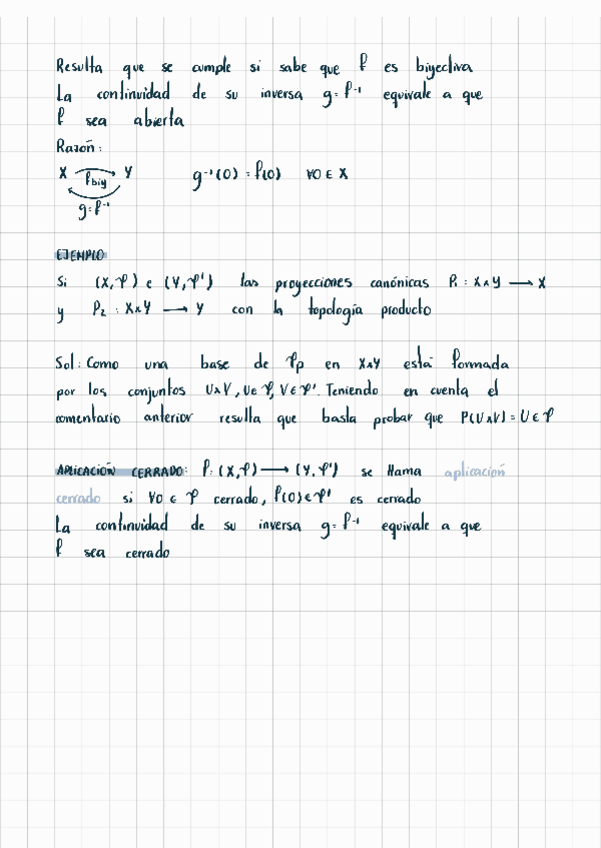 Resulta que se cumple si sabe que f es biyectiva
La continuidad de su inversa g=f⁻¹ equivale a que
f sea abierta
Razón:
X f biy Y g⁻¹(O) = f(O) ∀O ∈ X
g=f⁻¹
EJEMPLO
Si (X,𝒯) e (Y,𝒯') las proyecciones canónicas P₁ : X×Y → X
y P₂ : X×Y → Y con la topología producto
Sol: Como una base de 𝒯p en X×Y está formada
por los conjuntos U×V, U∈𝒯, V∈𝒯'. Teniendo en cuenta el
comentario anterior resulta que basta probar que P(U×V) = U∈𝒯
APLICACIÓN CERRADO: f: (X,𝒯) → (Y,𝒯') se llama aplicación
cerrado si ∀O ∈ 𝒯 cerrado, f(O)∈𝒯' es cerrado
La continuidad de su inversa g=f⁻¹ equivale a que
f sea cerrado